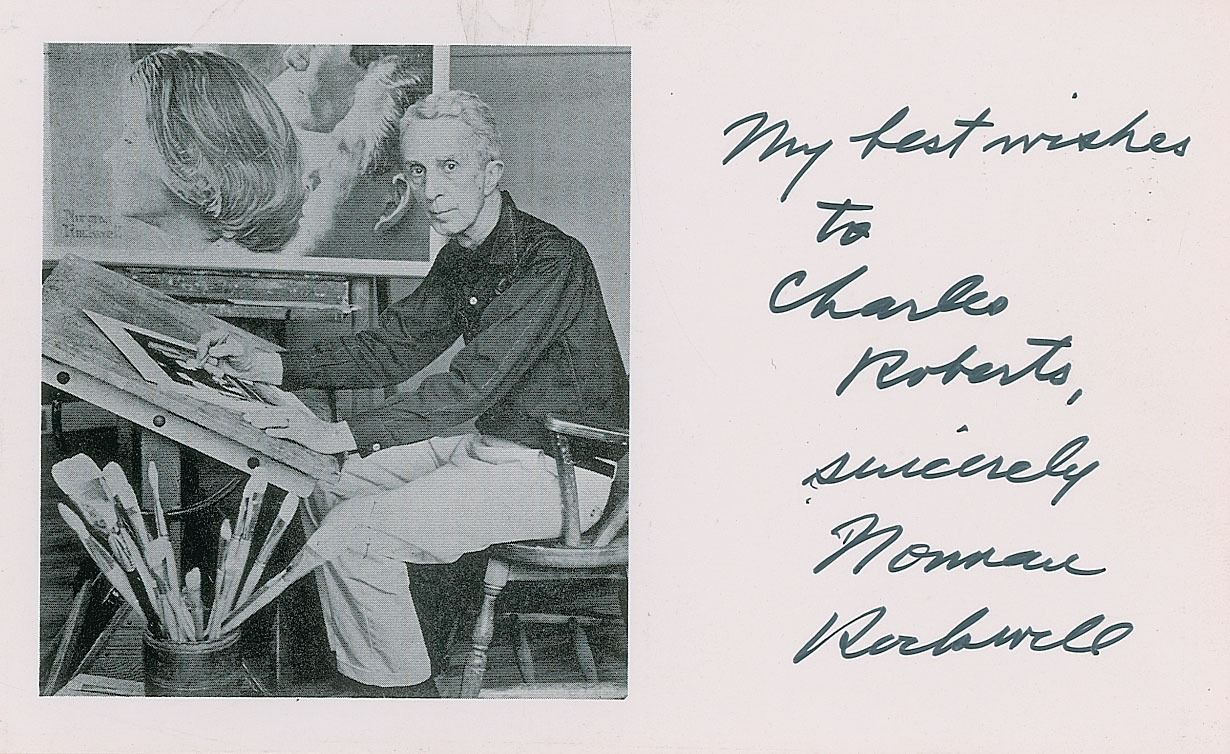 Norman
Rockwell
My best wishes
to
Charles
Roberts,
sincerely
Norman
Rockwell